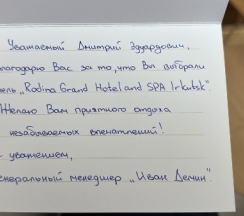 Уважаемый Дмитрий Эдуардович,
лагодарю Вас за то, что Вы выбрали
ель „Rodina Grand Hotel and SPA Irkutsk".
Желаю Вам приятного отдыха
незабываемых впечатлений!
уважением,
енеральный менеджер „Иван Демин"